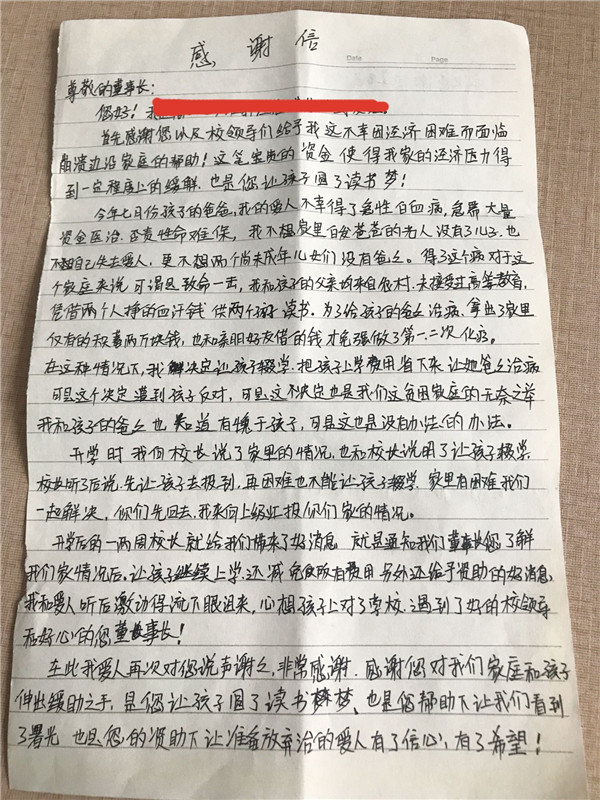 感谢信
Date
Page
尊敬的董事长：
您好！我
首先感谢您以及校领导们给予我这不幸因经济困难而面临
崩溃边沿家庭的帮助！这笔宝贵的资金使得我家的经济压力得
到一定程度上的缓解．也是您让孩子圆了读书梦！
今年七月份孩子的爸爸，我的爱人不幸得了急性白血病，急需大量
资金医治．否责性命难保，我不想家里白发苍苍的老人没有了儿子．也
不想自己失去爱人，更不想两个尚未成年儿女们没有爸爸。得了这个病对于这
个家庭来说可谓是致命一击，我和孩子的父亲均来自农村．未接受过高等教育，
凭借两个人挣的血汗钱供两个孩子读书。为了给孩子的爸爸治病．拿出了家里
仅有的积蓄两万块钱，也和亲朋好友借的钱才勉强做了第一．二次化疗。
在这种情况下，我决定让孩子辍学．把孩子上学费用省下来让她爸爸治病
可是这个决定遭到孩子反对，可是这个决定也是我们这贫困家庭的无奈之举
我和孩子的爸爸也知道有愧于孩子，可是这也是没有办法的办法。
开学时我向校长说了家里的情况，也和校长说明了让孩子辍学
校长听了后说．先让孩子去报到，再困难也不能让孩子辍学．家里有困难我们
一起解决，你们先回去，我来向上级汇报你们家的情况。
开学后的一两周校长就给我们带来了好消息　就是通知我们董事长您了解
我们家情况后，让孩子继续上学．还减免所有费用 另外还给予资助的好消息，
我和爱人听后激动得流下眼泪来，心想孩子上对了学校．遇到了好的校领导
和好心的您董事长！
在此我爱人再次对您说声谢谢，非常感谢．感谢您对我们家庭和孩子
伸出缓助之手，是您让孩子圆了读书梦．也是您帮助下让我们看到
了曙光 也是您的资助下让准备放弃治的爱人有了信心，有了希望！